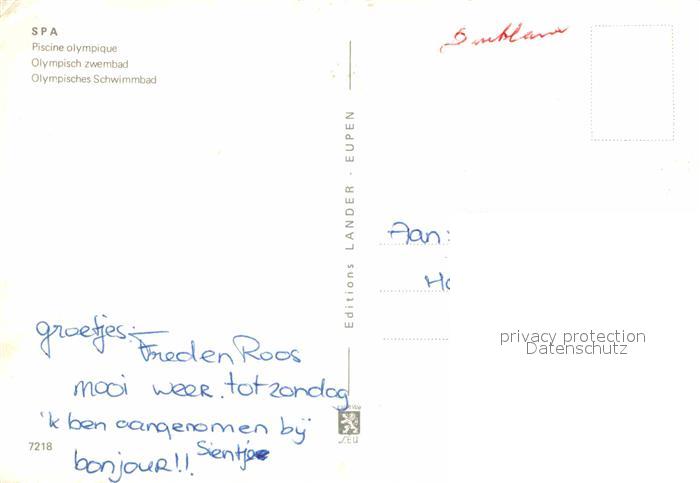 SPA
Piscine olympique
Olympisch zwembad
Olympisches Schwimmbad
Editions LANDER - EUPEN
Aan:
groetjes:
Fred en Roos
mooi weer. tot zondag
'k ben aangenomen bij
bonjour!! Sientje
7218
privacy protection
Datenschutz